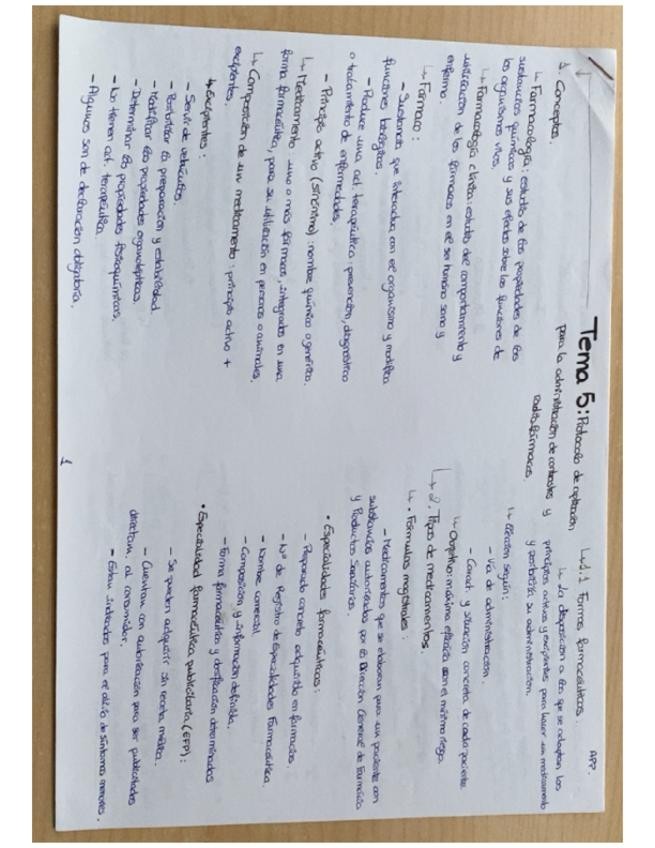 Tema 5: Protocolo de aplicación
para la administración de contrastes y
radiofármacos.
APP.
1. Conceptos.
↳ Farmacología: estudio de las propiedades de las
sustancias químicas y sus efectos sobre las funciones de
los organismos vivos,
↳ Farmacología clínica: estudio del comportamiento y
utilización de los fármacos en el ser humano sano y
enfermo.
↳ Fármaco:
- Sustancia que interactua con el organismo y modifica
funciones biológicas.
- Produce una act. terapéutica: prevención, diagnóstico
o tratamiento de enfermedades.
- Principio activo (sinónimo): nombre químico o genérico.
↳ Medicamento: uno o más fármacos, integrados en una
forma farmacéutica, para su utilización en personas o animales.
↳ Composición de un medicamento: principio activo +
excipientes.
↳ Excipientes:
- Servir de vehículos.
- Posibilitar la preparación y estabilidad
- Modificar las propiedades organolépticas.
- Determinar las propiedades fisicoquímicas.
- No tienen act. terapéutica.
- Algunos son de declaración obligatoria.
1
↳ 1.1 Formas farmacéuticas.
↳ La disposición a la que se adaptan los
principios activos y excipientes para hacer un medicamento
y posibilita su administración.
↳ Eligen según:
- Vía de administración.
- Caract. y situación concreta de cada paciente
↳ Objetivo: máxima eficacia con el mínimo riesgo.
↳ 2. Tipos de medicamentos.
↳ • Fórmulas magistrales:
- Medicamentos que se elaboran para un paciente con
substancias autorizadas por la Dirección General de Farmacia
y Productos Sanitarios.
• Especialidades farmacéuticas:
- Preparado concreto adquirido en farmacias.
- Nº de Registro de Especialidades Farmacéutica.
- Nombre comercial
- Composición y información definida.
- Forma farmacéutica y dosificación determinados
• Especialidad farmacéutica publicitaria (EFP):
- Se pueden adquirir sin receta médica.
- Cuentan con autorización para ser publicitados
directam. al consumidor.
- Estan indicados para el alivio de síntomas menores.